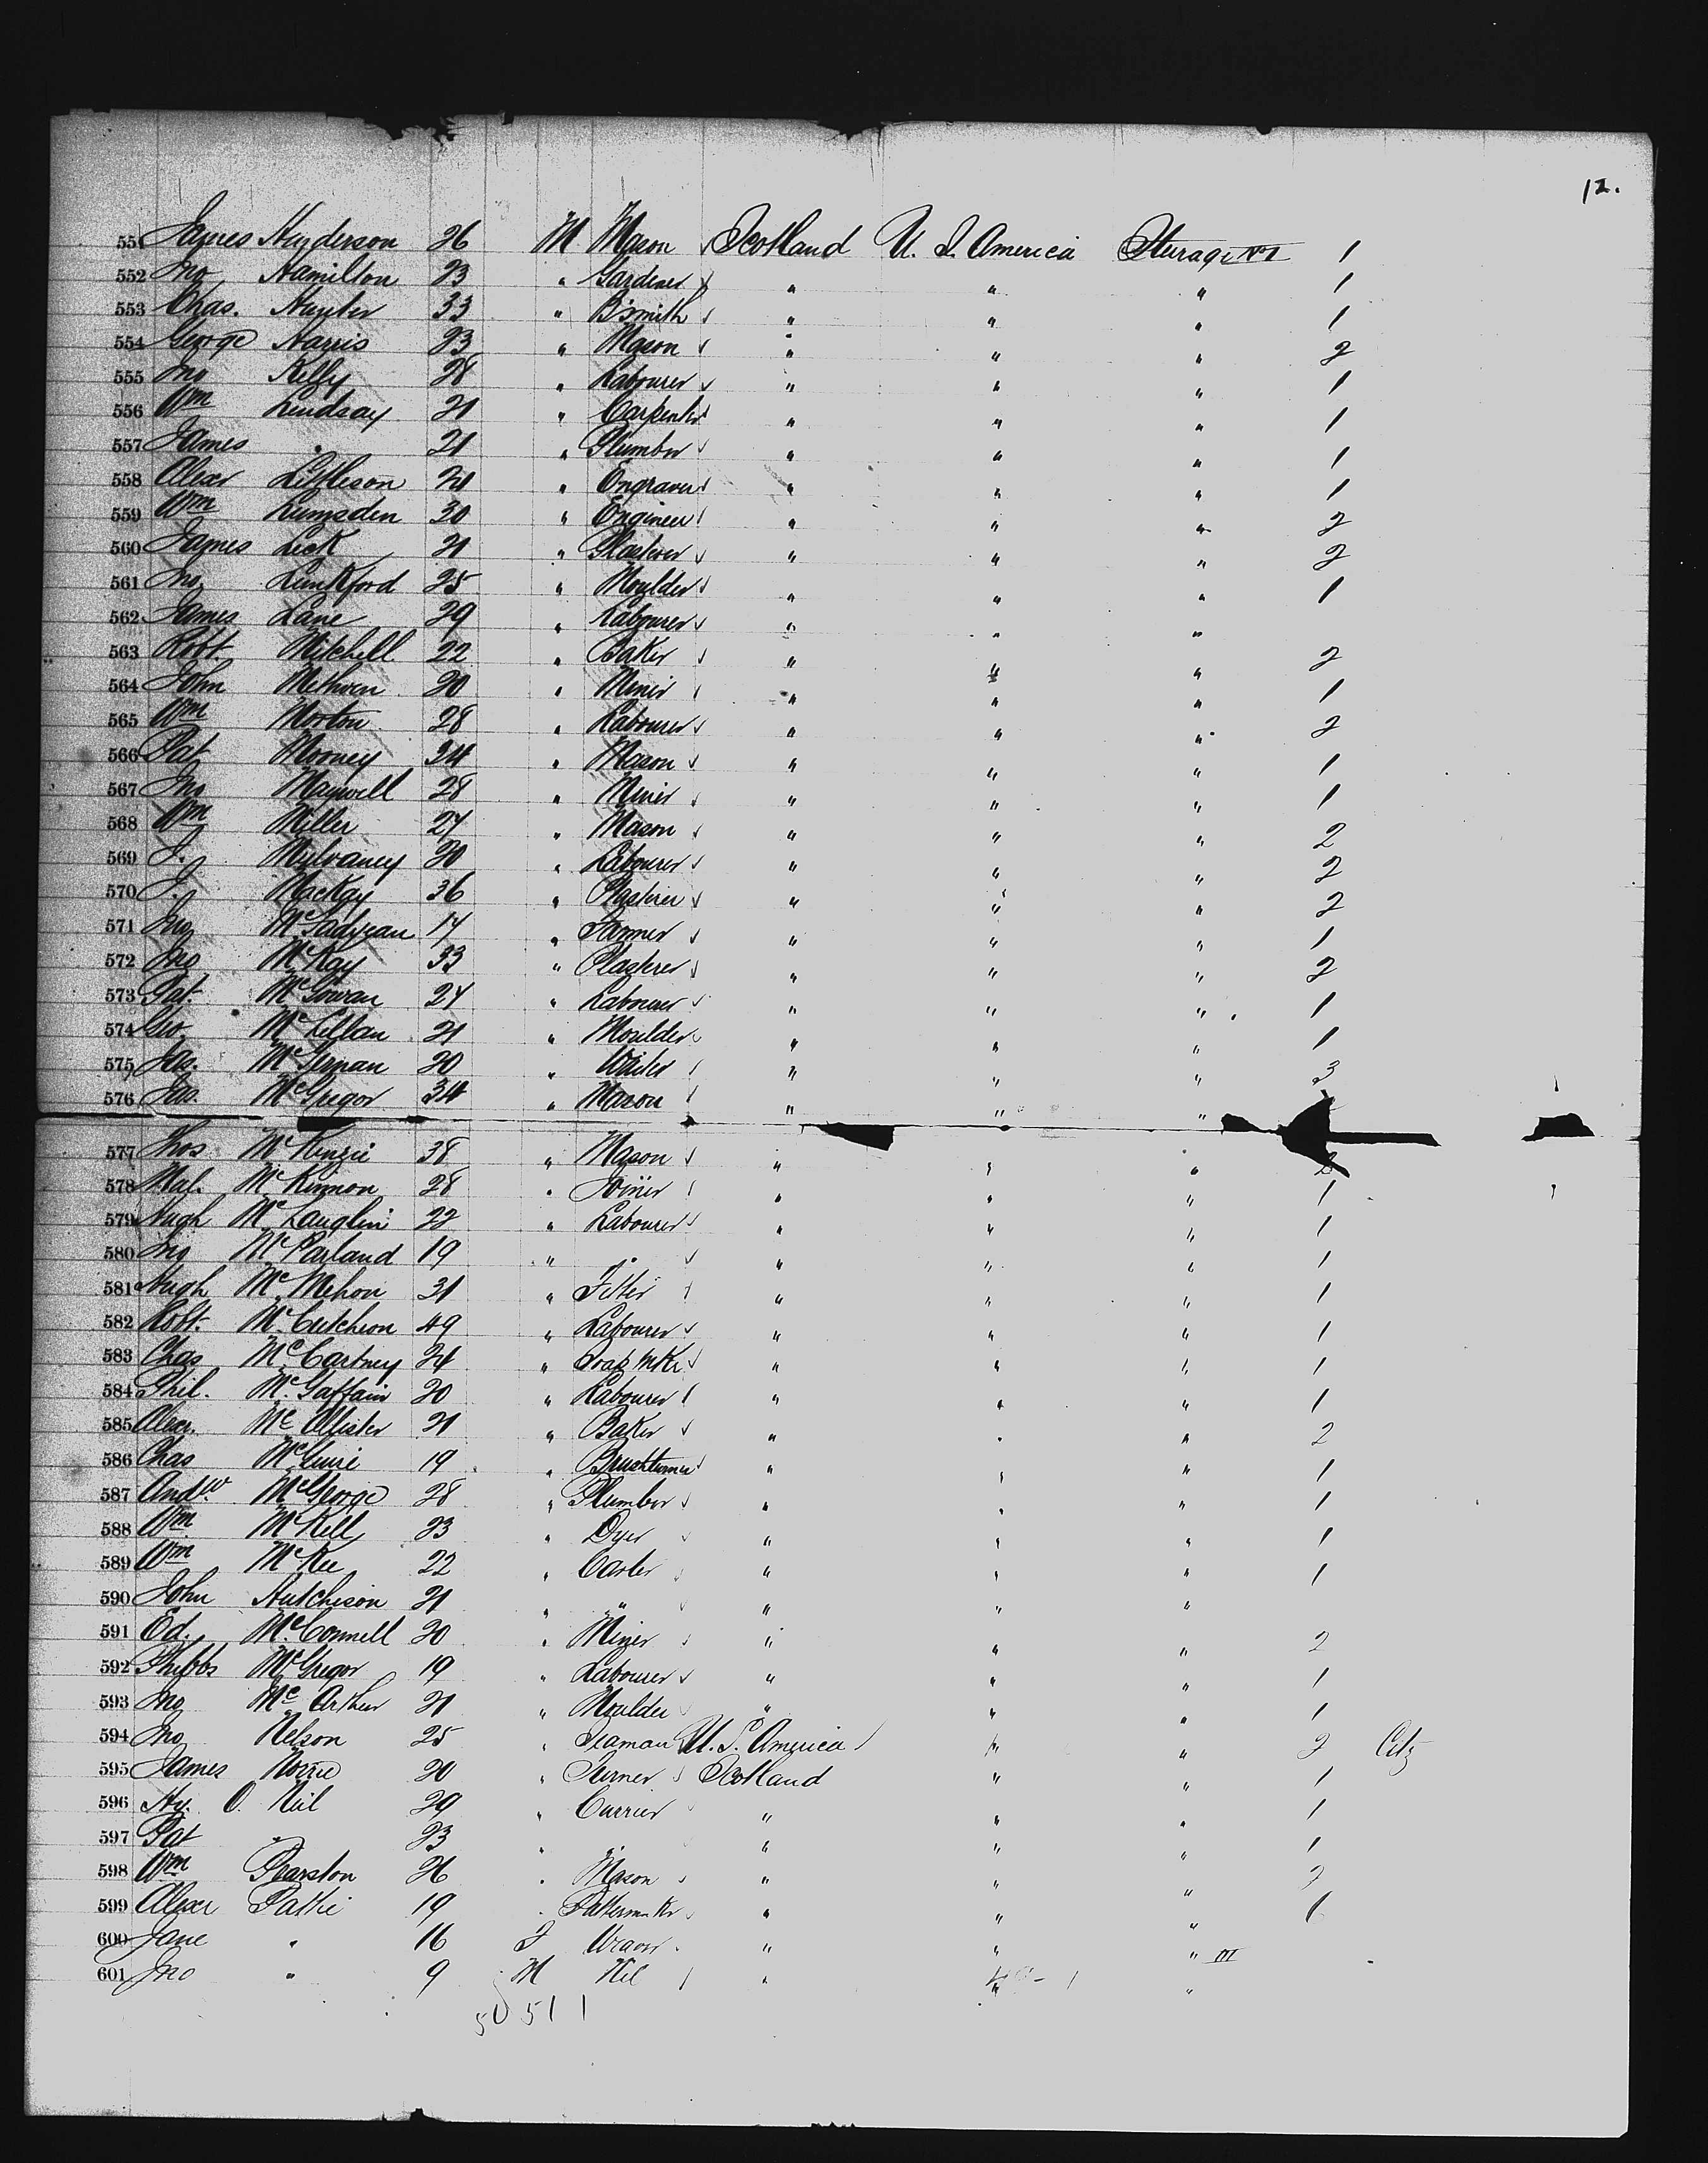 12.
551 James Henderson 26 M Mason Scotland U. S. America Sterage No 1 1
552 Jno Hamilton 23 " Gardener " " " 1
553 Chas. Hunter 33 " B'smith " " " 1
554 George Harris 23 " Mason " " " 2
555 Jno Kelly 28 " Labourer " " " 1
556 Wm Lindsay 21 " Carpenter " " " 1
557 James " 21 " Plumber " " " 1
558 Alexr Littleson 21 " Engraver " " " 1
559 Wm Lumsden 30 " Engineer " " " 2
560 James Leck 21 " Plasterer " " " 2
561 Jno. Lunkford 25 " Moulder " " " 1
562 James Lane 29 " Labourer " " "
563 Robt. Mitchell 22 " Baker " " " 2
564 John Methven 20 " Miner " " " 1
565 Wm Morton 28 " Labourer " " " 2
566 Pat Mooney 24 " Mason " " " 1
567 Jno Maxwell 28 " Miner " " " 1
568 Wm Miller 24 " Mason " " " 2
569 J. Mulvaney 20 " Labourer " " " 2
570 J. MacKay 36 " Plasterer " " " 2
571 Jno McFadyean 14 " Farmer " " " 1
572 Jno McKay 33 " Plasterer " " " 2
573 Pat. McGowan 24 " Labourer " " " 1
574 Geo. McLellan 21 " Moulder " " " 1
575 Jas. McTernan 20 " Waiter " " " 3
576 Jas. McGregor 34 " Mason " " "
577 Thos McKenzie 38 " Mason " " " 2
578 Mal. McKinnon 28 " Joiner " " " 1
579 Hugh McLauglin 22 " Labourer " " " 1
580 Jno McParland 19 " " " " " 1
581 Hugh McMehon 31 " Fitter " " " 1
582 Robt. McCutcheon 49 " Labourer " " " 1
583 Chas McCartney 24 " Soap Mkr " " " 1
584 Phil. McGaffain 20 " Labourer " " " 1
585 Alexr. McAllister 21 " Baker " " " 2
586 Chas McGuire 19 " " " " 1
587 Andw. McGeorge 28 " Plumber " " " 1
588 Wm McKell 23 " Dyer " " " 1
589 Wm McKee 22 " Carter " " " 1
590 John Hutchison 21 " " " " "
591 Ed. McConnell 20 " Miner " " " 2
592 McGregor 19 " Labourer " " " 1
593 Jno McArthur 21 " Moulder " " " 1
594 Jno Nelson 25 " Seaman U. S. America " " 2 Citz
595 James Norrie 20 " Turner Scotland " " 1
596 Hy. O. Neil 29 " Currier " " " 1
597 Pat " 23 " " " " " 1
598 Wm Pearston 26 " Mason " " " 2
599 Alexr Pattie 19 " Patternmkr " " " 1
600 Jane " 16 F Weaver " " " III
601 Jno " 9 M Nil " " "
50 51 1